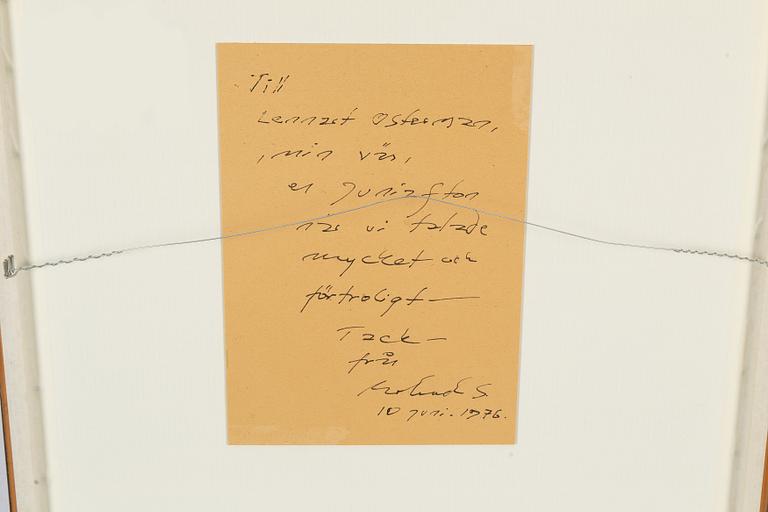 Till
Lennart Österman,
min vän,
en juniafton
när vi talade
mycket och
förtroligt —
Tack —
från
S.
10 juni. 1976.